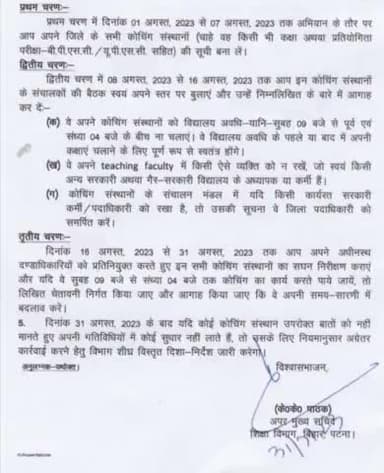 प्रथम चरण:-
प्रथम चरण में दिनांक 01 अगस्त, 2023 से 07 अगस्त, 2023 तक अभियान के तौर पर
आप अपने जिले के सभी कोचिंग संस्थानों (चाहे वह किसी भी कक्षा अथवा प्रतियोगिता
परीक्षा-बी.पी.एस.सी./यू.पी.एस.सी. सहित) की सूची बना लें।
द्वितीय चरण:-
द्वितीय चरण में 08 अगस्त, 2023 से 16 अगस्त, 2023 तक आप इन कोचिंग संस्थानों
के संचालकों की बैठक स्वयं अपने स्तर पर बुलाएं और उन्हें निम्नलिखित के बारे में आगाह
कर दें:-
(क) वे अपने कोचिंग संस्थानों को विद्यालय अवधि-यानि-सुबह 09 बजे से पूर्व एवं
संध्या 04 बजे के बीच ना चलाएं। वे विद्यालय अवधि के पहले या बाद में अपनी
कक्षाएं चलाने के लिए पूर्ण रूप से स्वतंत्र होंगे।
(ख) वे अपने teaching faculty में किसी ऐसे व्यक्ति को न रखें, जो स्वयं किसी
अन्य सरकारी अथवा गैर-सरकारी विद्यालय के अध्यापक या कर्मी हैं।
(ग) कोचिंग संस्थानों के संचालन मंडल में यदि किसी कार्यरत सरकारी
कर्मी/पदाधिकारी को रखा है, तो उसकी सूचना वे जिला पदाधिकारी को
समर्पित करें।
तृतीय चरण:-
दिनांक 16 अगस्त, 2023 से 31 अगस्त, 2023 तक आप अपने अधीनस्थ
दण्डाधिकारियों को प्रतिनियुक्त करते हुए इन सभी कोचिंग संस्थानों का सघन निरीक्षण कराएं
और यदि वे सुबह 09 बजे से संध्या 04 बजे तक कोचिंग का कार्य करते पाये जायें, तो
लिखित चेतावनी निर्गत किया जाए और आगाह किया जाए कि वे अपनी समय-सारणी में
बदलाव करें।
5. दिनांक 31 अगस्त, 2023 के बाद यदि कोई कोचिंग संस्थान उपरोक्त बातों को नहीं
मानते हुए अपनी गतिविधियों में कोई सुधार नहीं लाते हैं, तो उसके लिए नियमानुसार अग्रेतर
कार्रवाई करने हेतु विभाग शीघ्र विस्तृत दिशा-निर्देश जारी करेगा।
अनुलग्नक-यथोक्त।
विश्वासभाजन,
(के०के० पाठक)
अपर मुख्य सचिव
शिक्षा विभाग, बिहार, पटना।